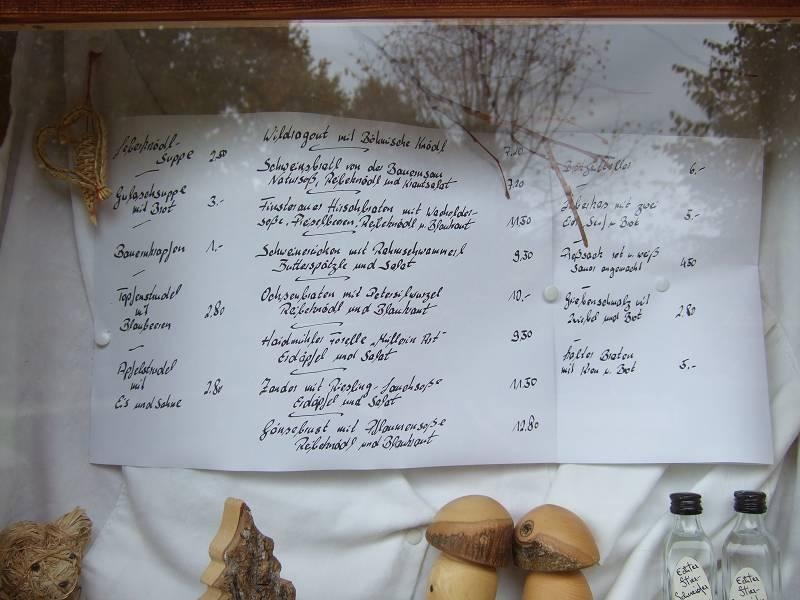 Leberknödl-
Suppe 2.50
Gulaschsuppe
mit Brot 3.-
Bauernkrapfen 1.-
Topfenstrudel
mit
Blaubeeren 2.80
Apfelstrudel
mit
Eis und Sahne 2.80
Wildragout mit Böhmische Knödl 7.20
Schweinsbratl von der Bauernsau
Natursoß, Reibeknödl und Krautsalat 7.20
Finsterauer Hirschbraten mit Wacholder-
soße, Preiselbeeren, Reibeknödl u. Blaukraut 11.50
Schweinerücken mit Rahmschwammerl
Butterspätzle und Salat 9.30
Ochsenbraten mit Petersilwurzel
Reibeknödl und Blaukraut 10.-
Haidmühler Forelle "Müllerin Art"
Erdäpfel und Salat 9.30
Zander mit Riesling-Lauchsoße
Erdäpfel und Salat 11.30
Gänsebrust mit Pflaumensoße
Reibeknödl und Blaukraut 12.80
6.-
mit zwei
Senf u. Brot 5.-
Preßsack rot u. weiß
Sauer angemacht 4.50
Griebenschmalz mit
Zwiebel und Brot 2.80
Kalter Braten
mit Kren u. Brot 5.-
Echter
Stier-
Echter
Stier-